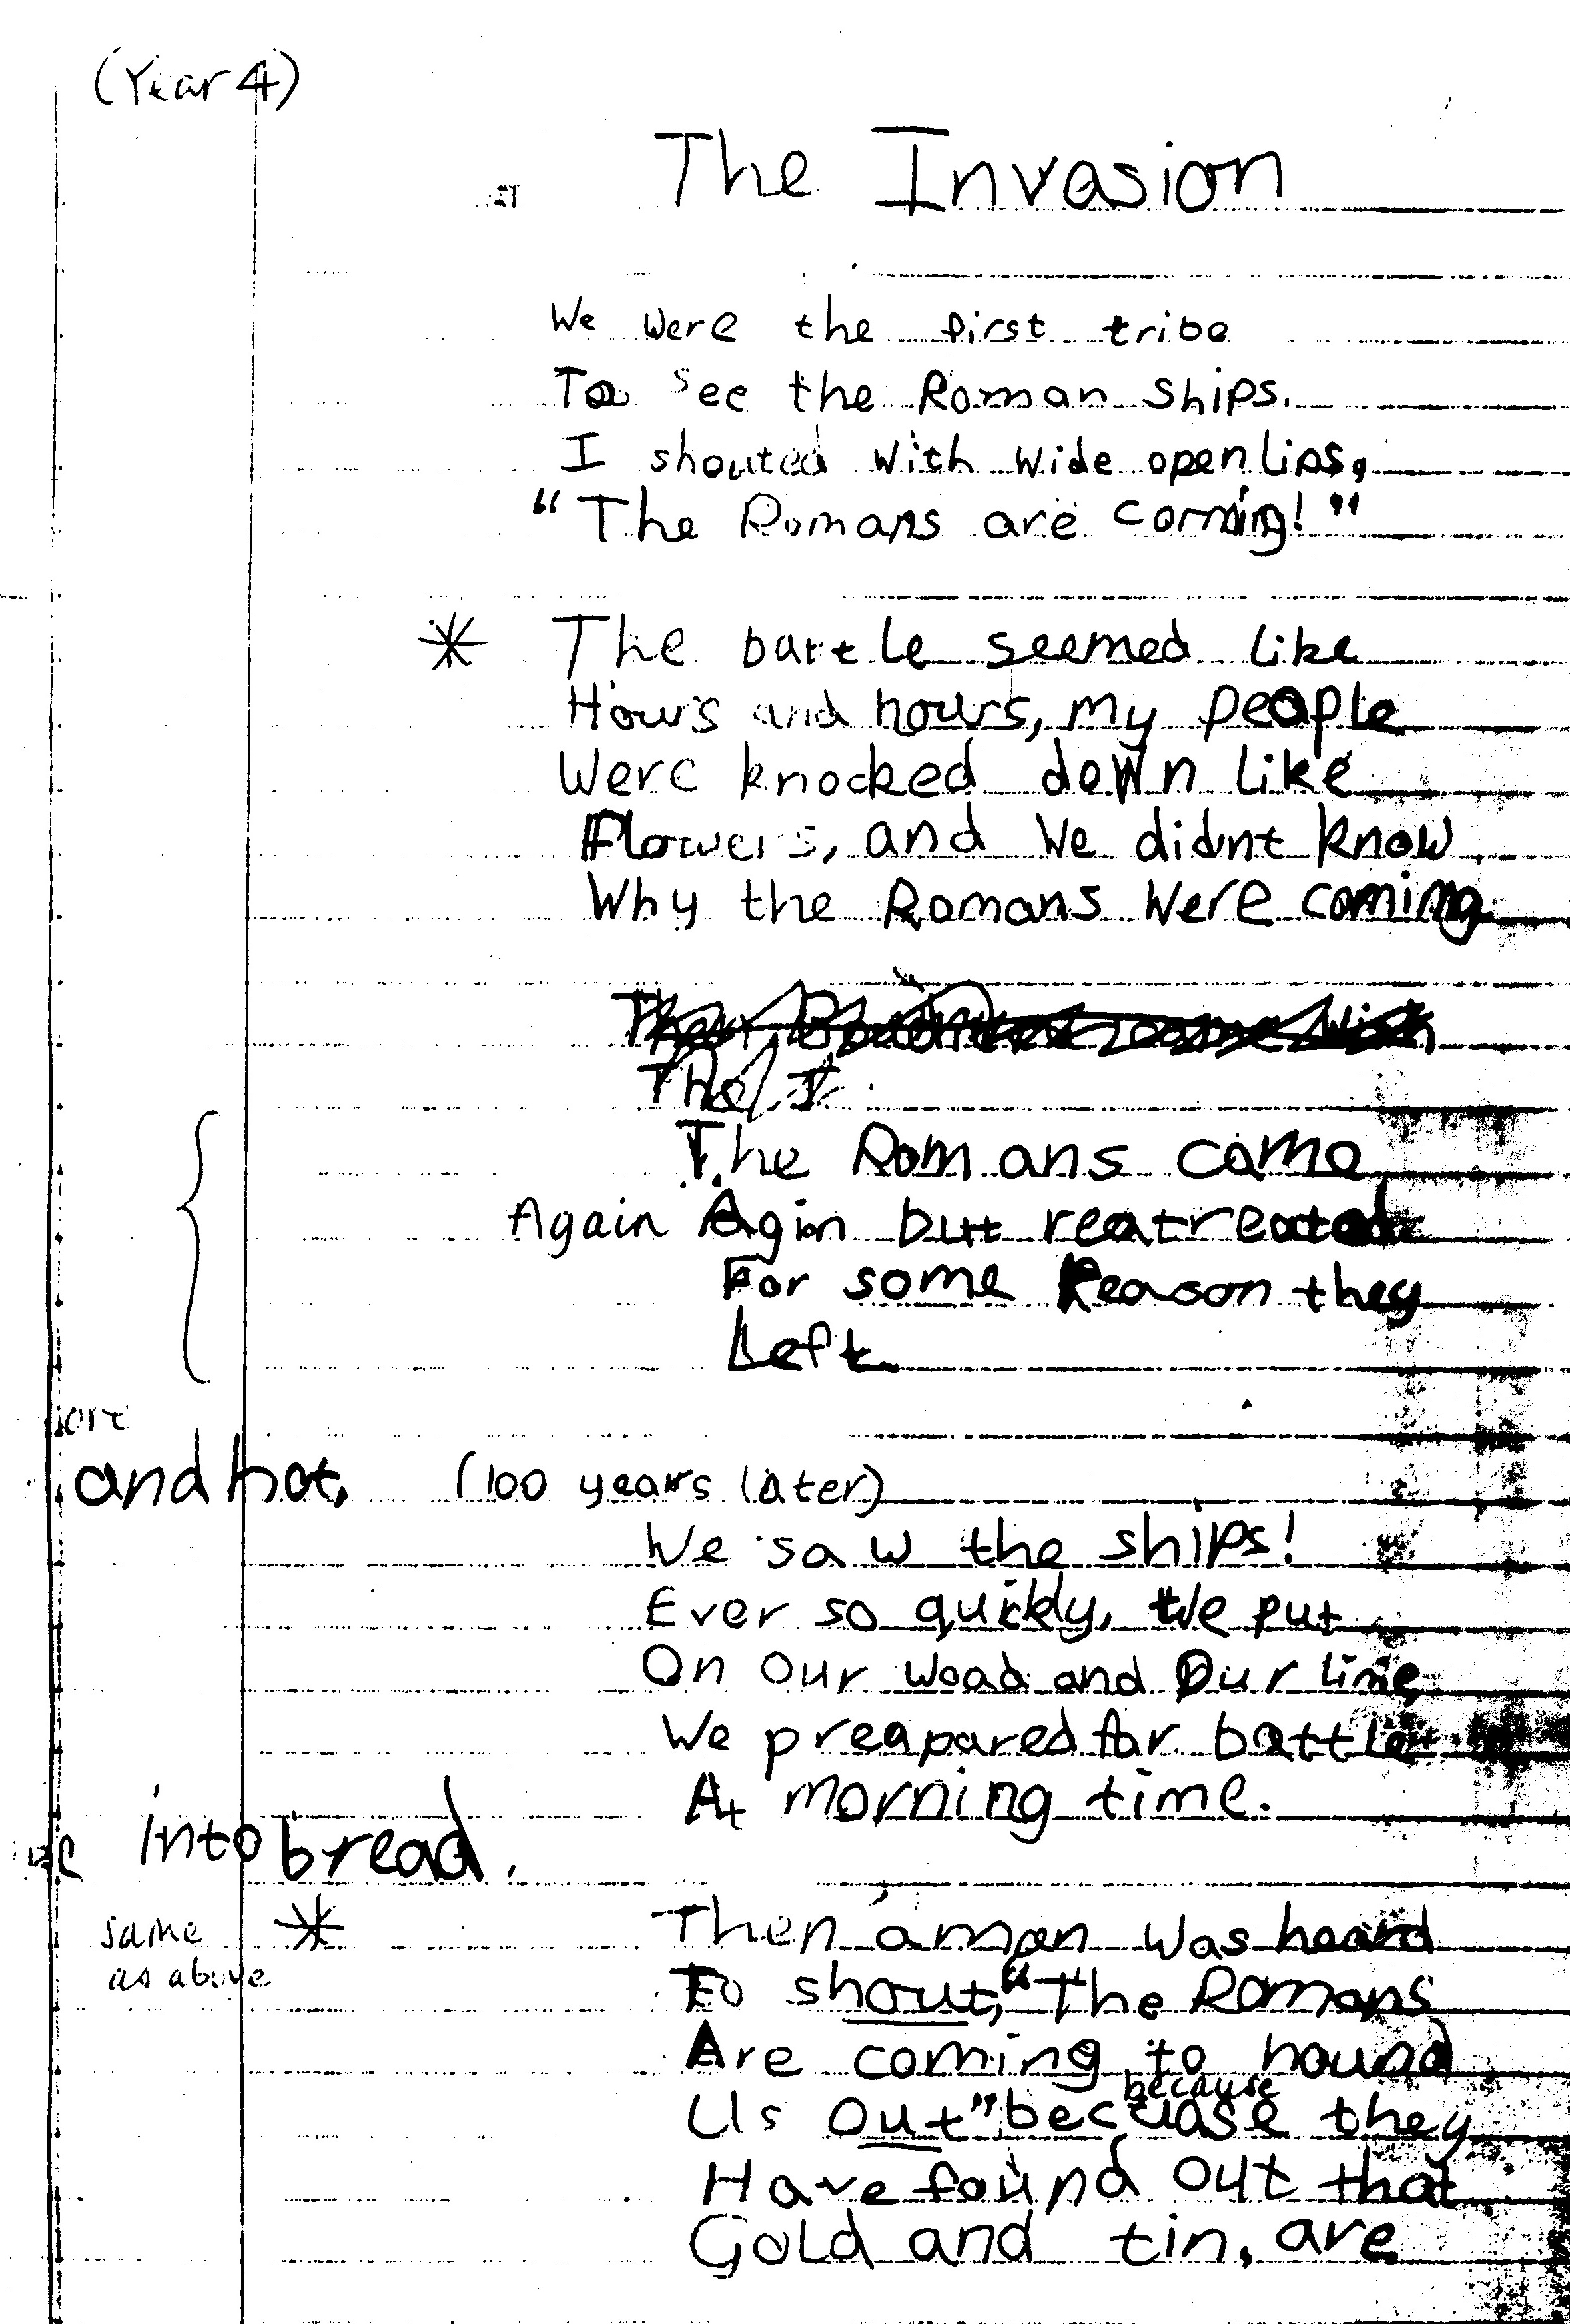 (Year 4)
The Invasion
We were the first tribe
To see the Roman ships.
I shouted with wide open lips,
"The Romans are coming!"
* The battle seemed like
Hours and hours, my people
Were knocked down like
Flowers, and we didnt know
Why the Romans were coming
The
The Romans came
Again Agin but reatreated
For some Reason they
Left.
and hot,
(100 years later)
We saw the ships!
Ever so quickly, We put
On our woad and Our lime,
We preapared for battle
At morning time.
into bread.
same as above
* Then a man was heard
To shout, "The Romans
Are coming to hound
because
Us out" becuase they
Have found out that
Gold and tin, are